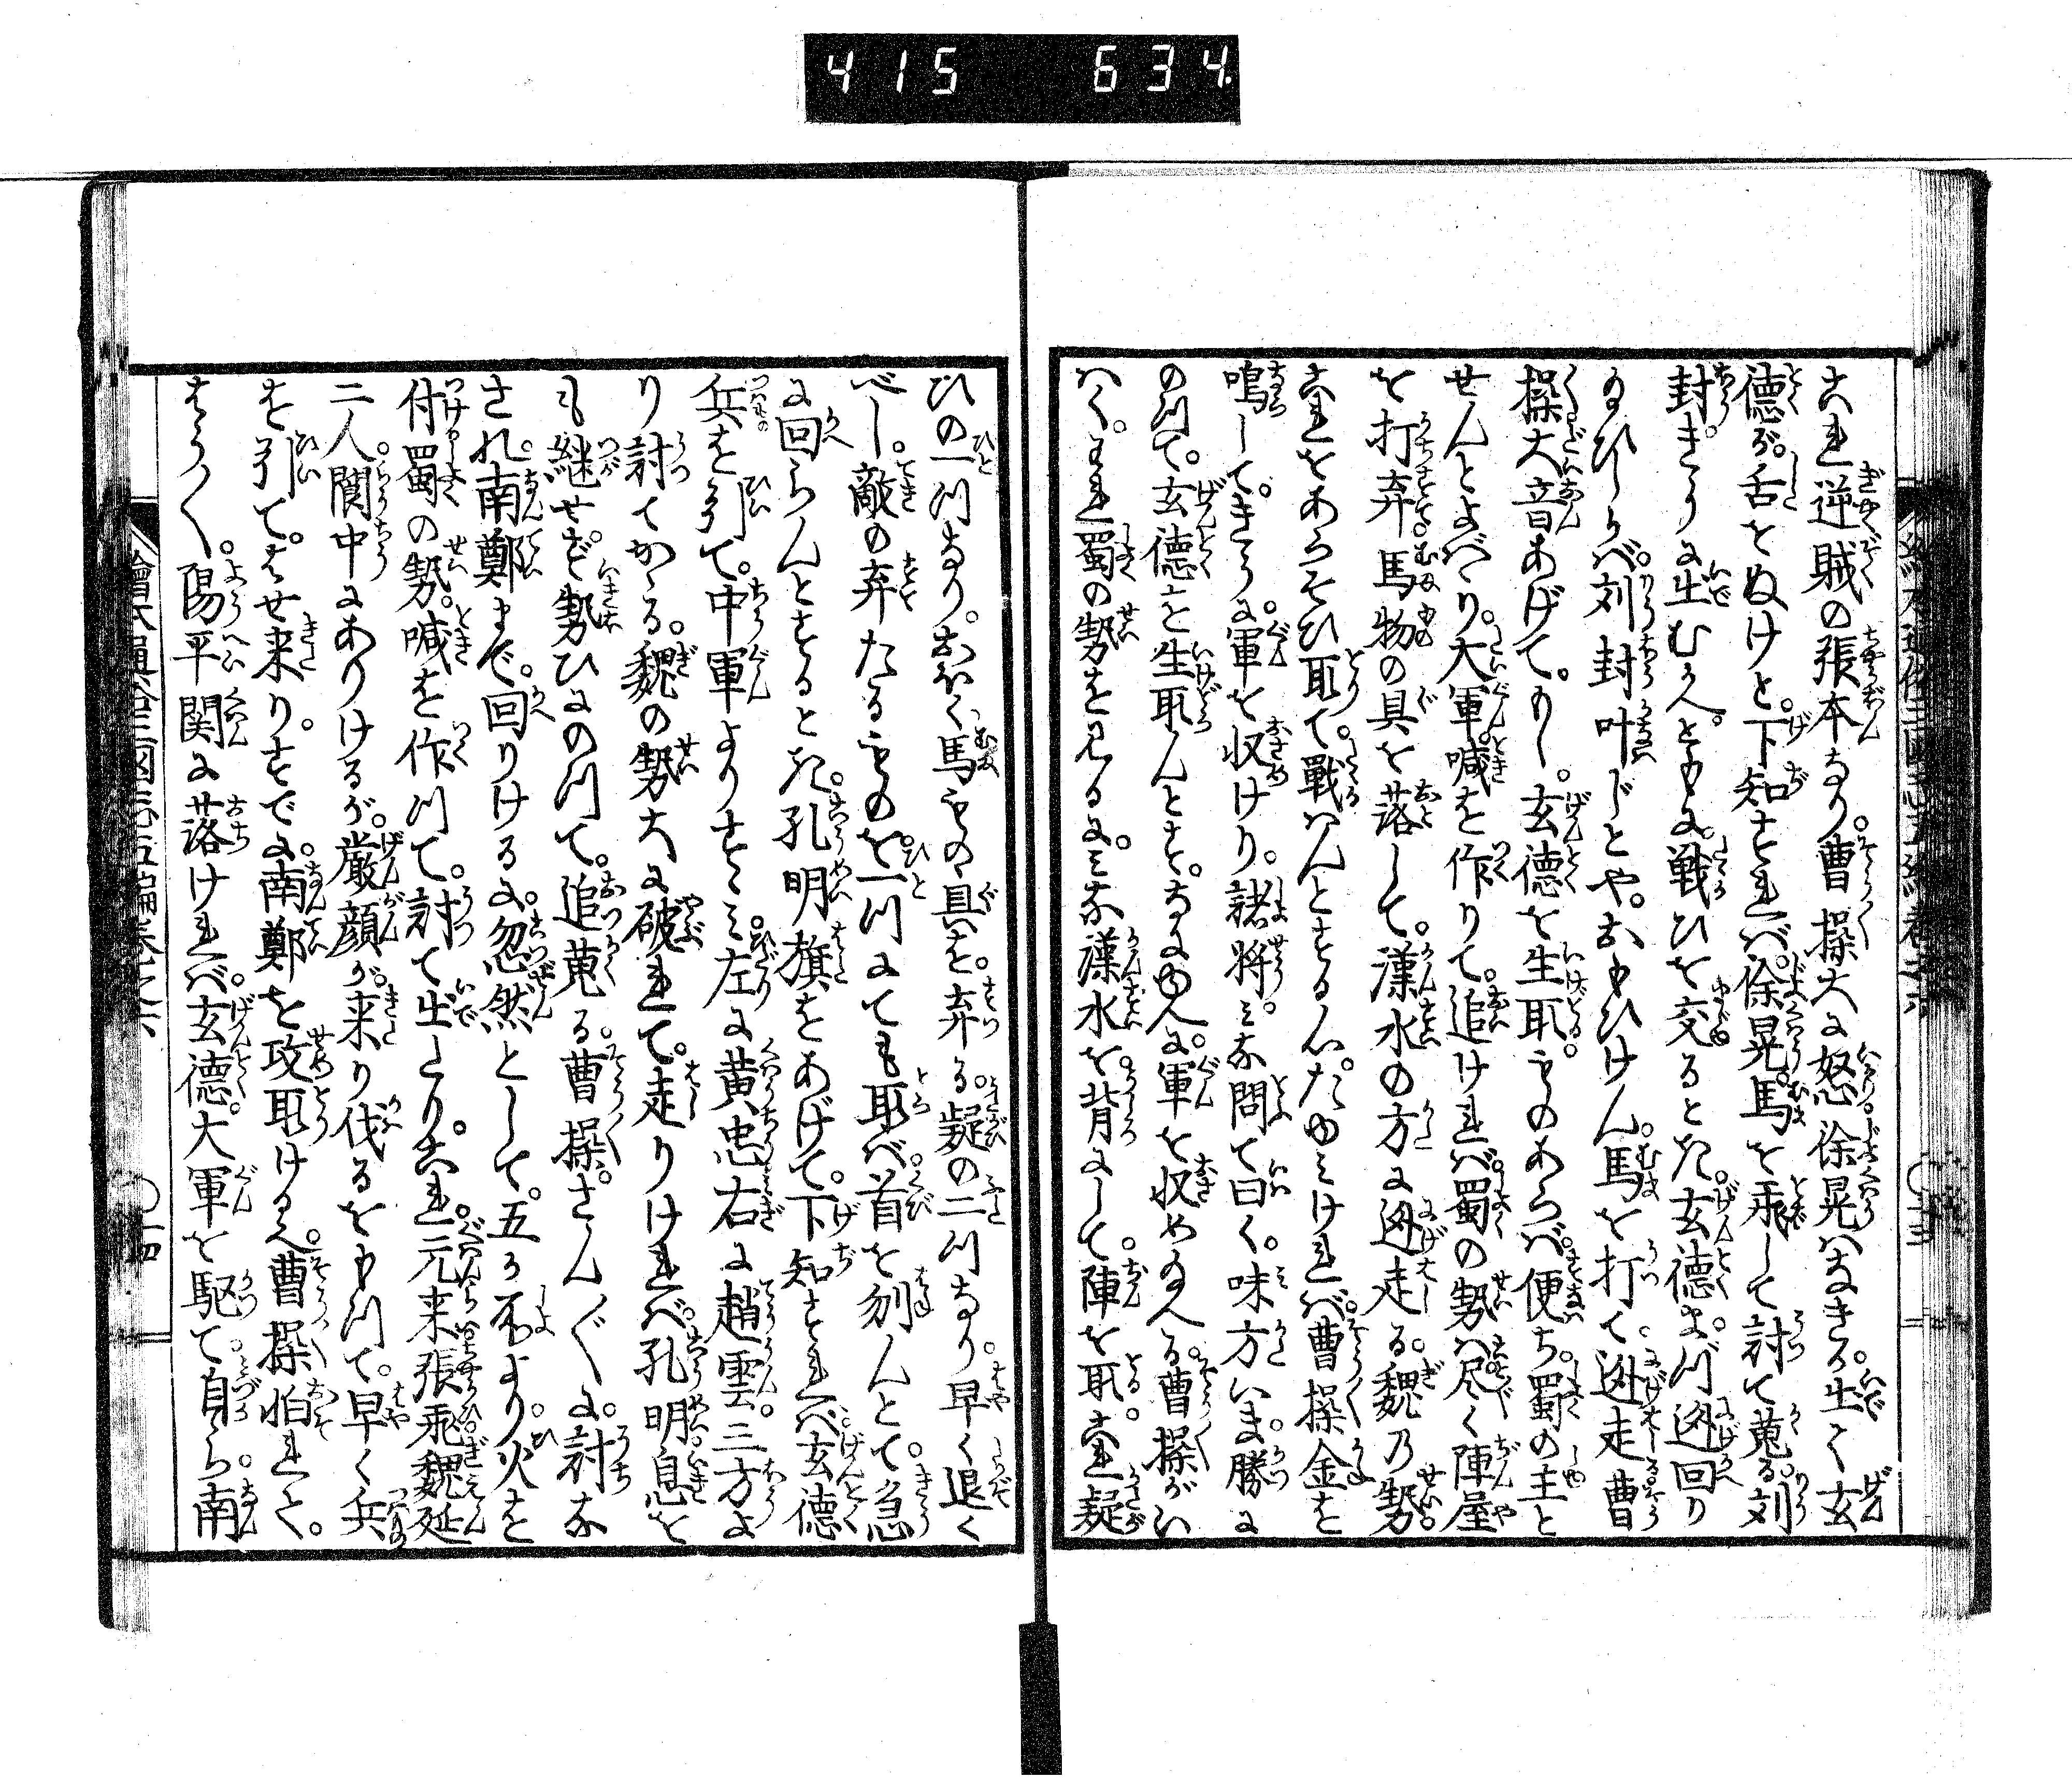 415 634
これ逆賊の張本なり。曹操大に怒徐晃はなきか。出て玄
徳が舌をぬけと。下知すれば。徐晃。馬を飛して討て蒐る。劉
封。きうに出むかへ。ともに戦ひを交るとき。玄徳まづ迯回り
給ひしかば。劉封叶じとやおもひけん。馬を打て迯走る曹
操大音あげて。もし玄徳を生取ものあらば。便ち蜀の主と
せんとよべり。大軍喊を作りて。追ければ。蜀の勢は尽く陣屋
を打弃。馬物の具を落して。漢水の方に迯走る。魏の勢。
これをあらそひ取て。戦はんとする心。たゆみければ。曹操金を
鳴してきうに。軍を収けり。諸将。みな問て曰く。味方いま。勝に
のつて。玄徳を生取んとす。なにゆへに。軍を収め給へる。曹操がい
はく。われ蜀の勢を見るに。みな漢水を。背にして。陣を取。これ疑
ひの一つなり。おほく馬もの具を。弃る。疑の二つなり。早く退く
べし。敵の弃たるものを。一つにても取ば。首を刎んとて。急
に回らんとするとき。孔明旗をあげて。下知すれば。玄徳
兵を引て。中軍よりすゝみ。左に黄忠右に趙雲。三方よ
り討てかゝる。魏の勢大に破れて。走りければ。孔明。息を
も継せず。勢ひにのつて。追蒐る。曹操。さんぐに。討な
され。南鄭まで。回りけるに。忽然として。五ヶ所より火を
付蜀の勢。喊を作つて。討て出たり。これ。元来張飛魏延
二人。閬中にありけるが。厳顔が。来り伐るをもつて。早く兵
を引て。はせ来り。すでに。南鄭を攻取けるゆへ。曹操怕れて。
はうく。陽平関に落ければ。玄徳。大軍を駆て。自ら。南
繪本通俗三國志五編巻之六 〇十三
繪本通俗三國志五編巻之六 〇十四